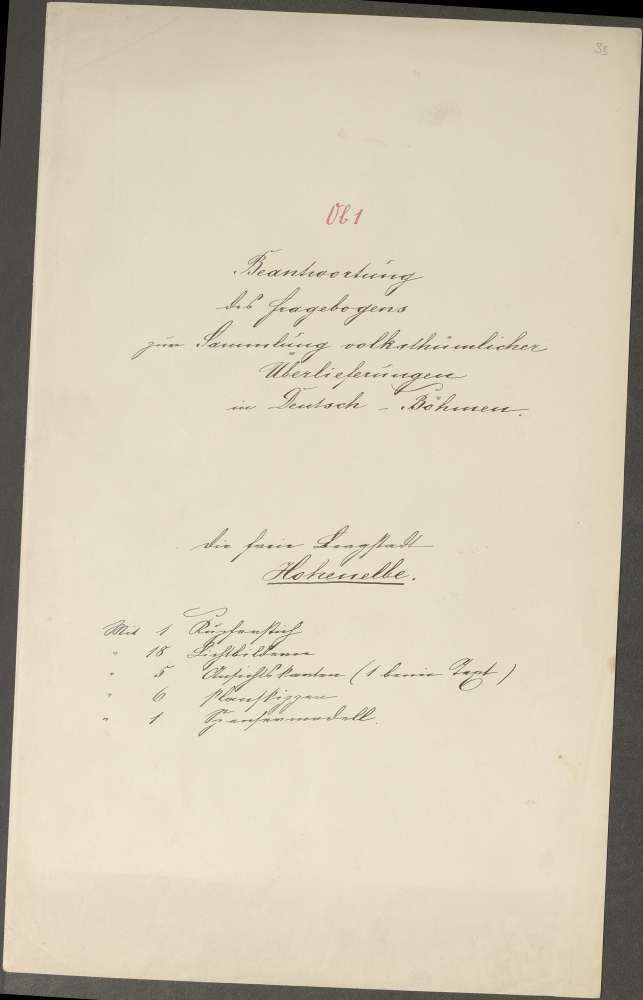 35
Ob 1
Beantwortung
des Fragebogens
zur Sammlung volksthümlicher
Überlieferungen
in Deutsch - Böhmen.
die freie Bergstadt
Hohenelbe.
Mit 1 Kupferstich
" 18 Lichtbildern
" 5 Ansichtskarten (1 beim Text)
" 6 Planskizzen
" 1 modell.